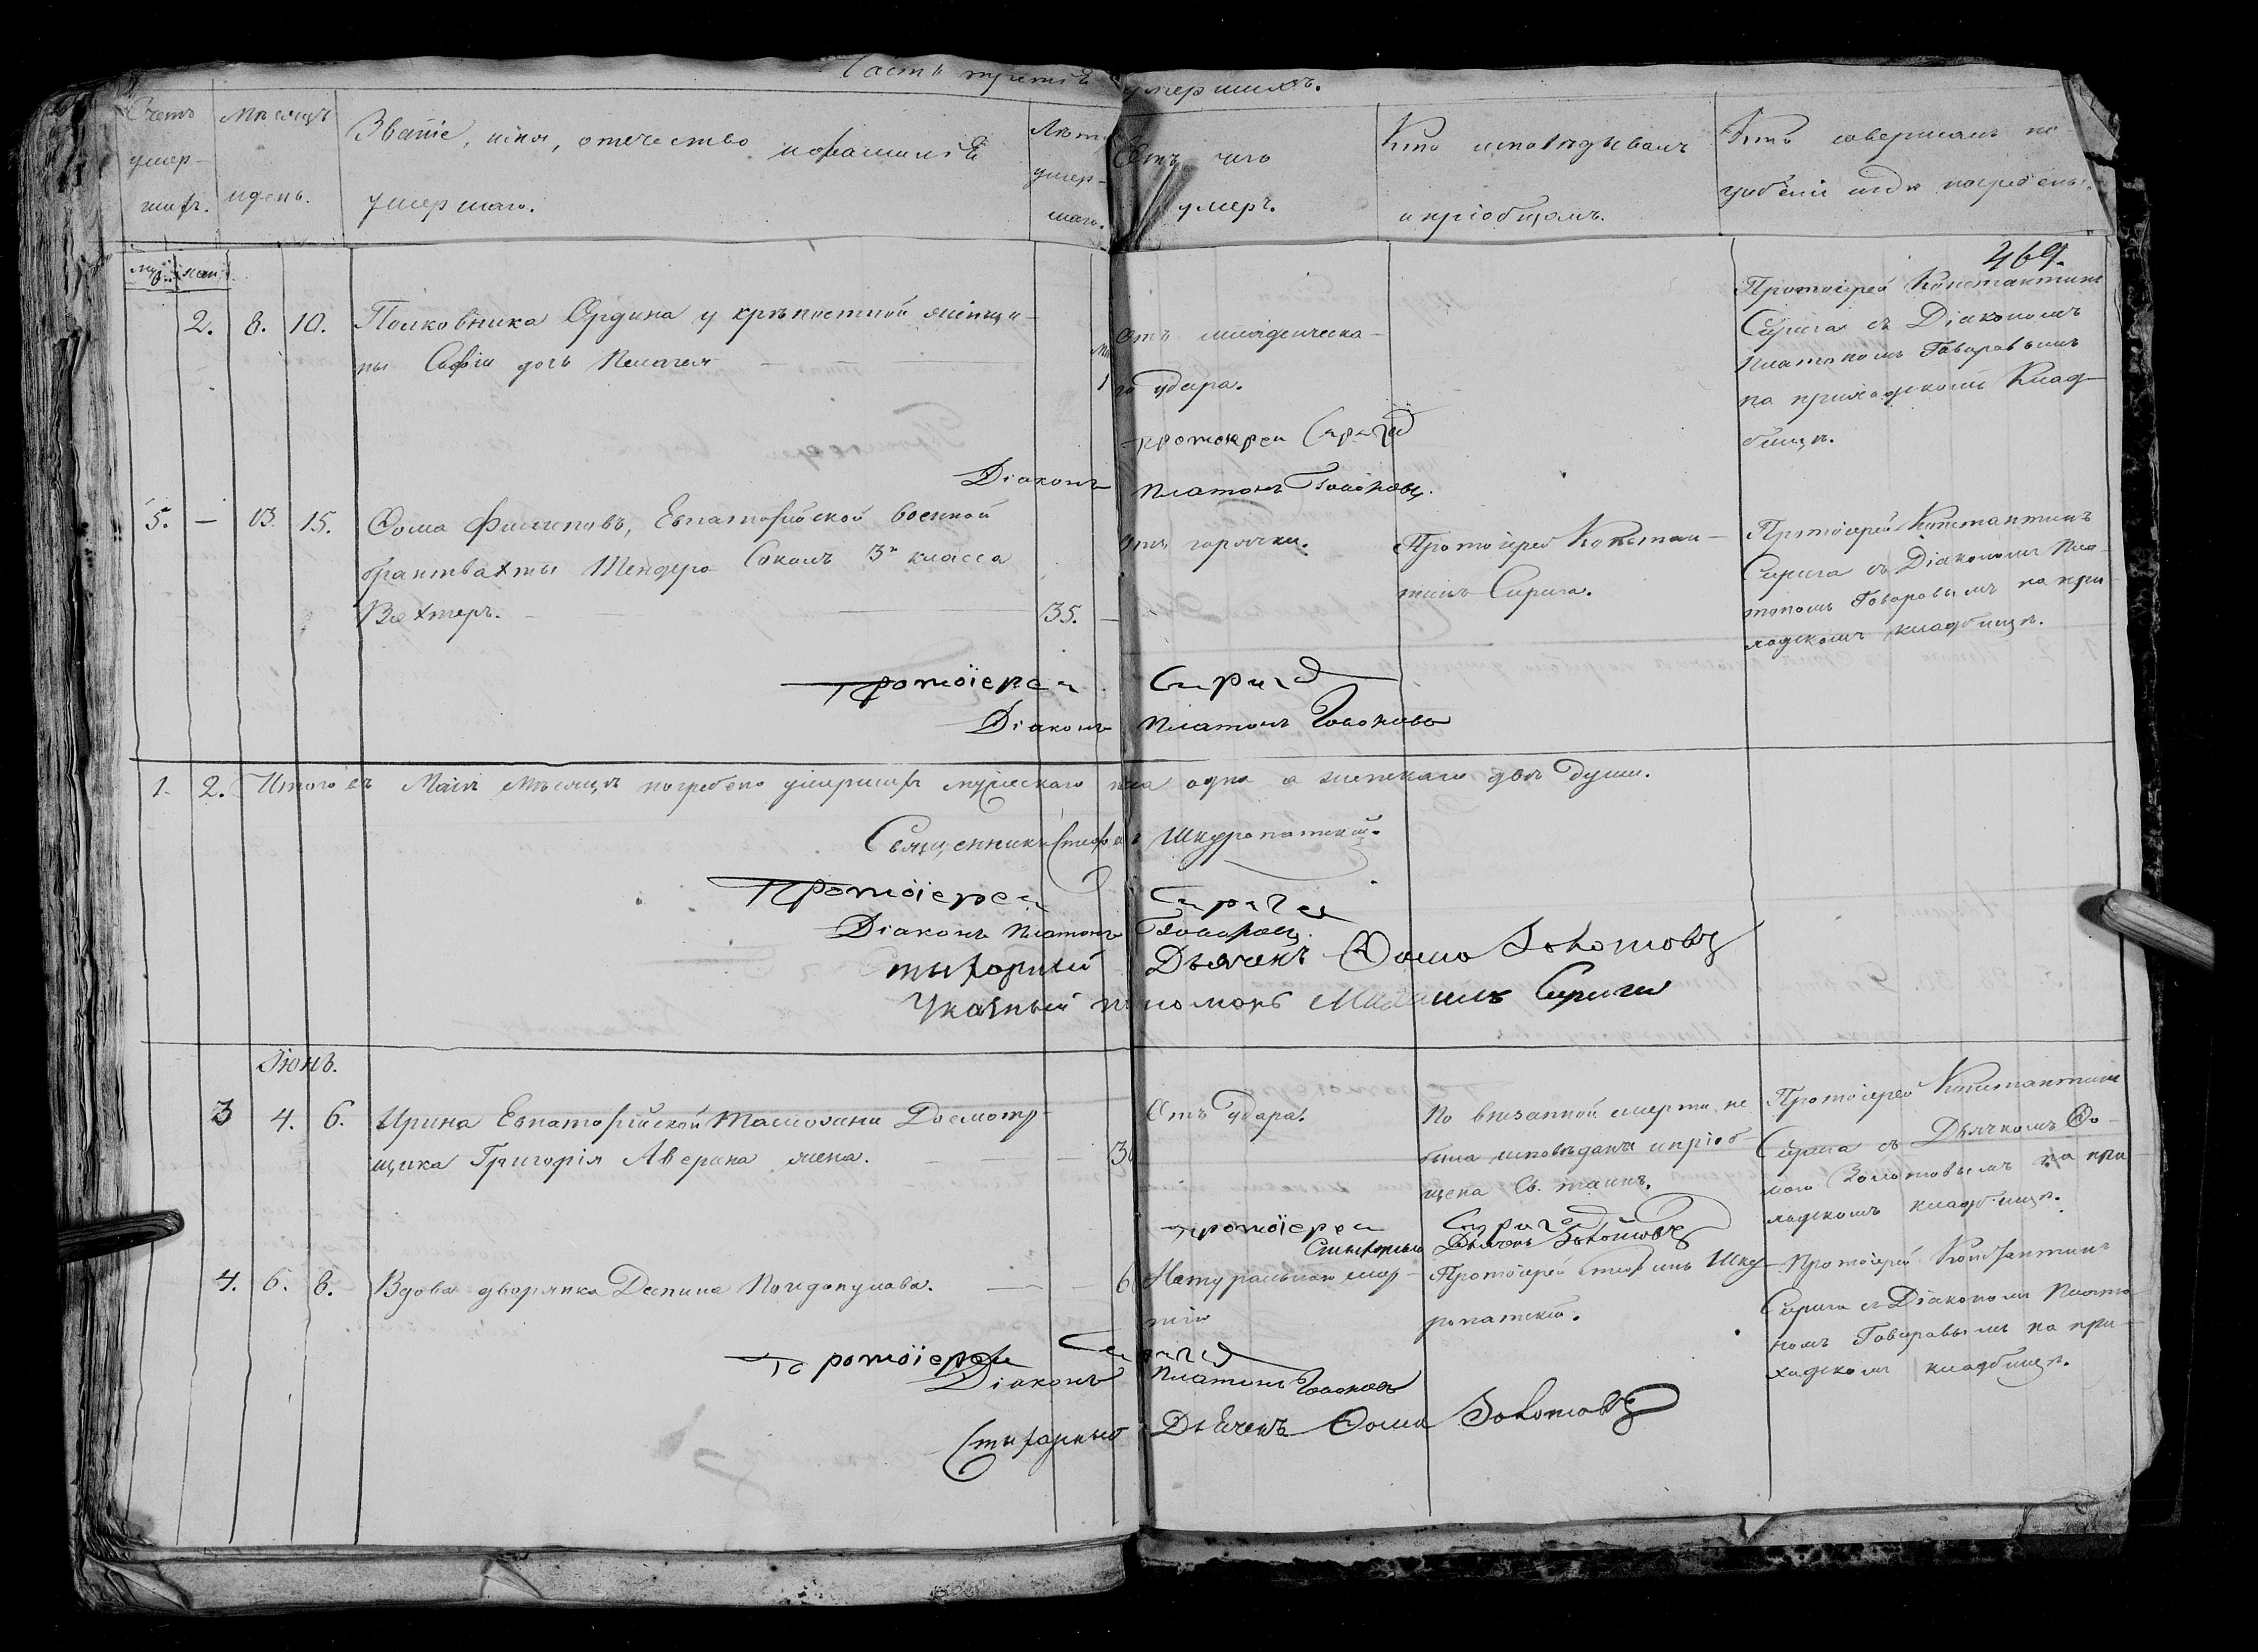 Часть третія умершихъ.
Счетъ умер-
шихъ.
Мѣсяцъ
и день.
Званіе, имя, отечество и фамилія
умершаго.
Лѣта
умер-
шаго.
Отъ чего
умеръ.
Кто исповѣдывалъ
и пріобщалъ.
Кто совершалъ по-
гребеніе и гдѣ погребены.
469.
муж. жен.
2. 8. 10. Полковника Ордина у крѣпостной женщи-
ны Софіи дочь Пелагея
1
Отъ младенческа-
го удара.
Протоіерей Константинъ
Сирига съ Діакономъ
Платономъ Говоровымъ
на приходскомъ Клад-
бищѣ.
Протоіерей Сирига
Діаконъ Платонъ Говоровъ
5. — 13. 15. Ѳома Филиповъ, Евпаторійской военной
брантвахты Тендера Соколъ 3го класса
Вахтеръ. 35.
Отъ горячки.
Протоіерей Констан-
тинъ Сирига.
Протоіерей Константинъ
Сирига съ Діакономъ Пла-
тономъ Говоровымъ на при-
ходскомъ кладбищѣ.
Протоіерей Сирига
Діаконъ Платонъ Говоровъ
1. 2. Итого въ Маіѣ мѣсяцѣ погребено умершихъ мужескаго пола одна а женскаго двѣ души.
Священникъ Стефанъ Шкуропатскій.
Протоіерей Сирига
Діаконъ Платонъ Говоровъ
Стихарный Дьячекъ Ѳома Золотовъ
Указный пономарь Михаилъ Сирига
Іюнь.
3 4. 6. Ирина Евпаторійской Таможни Досмотр-
щика Григорія Аверина жена.
Отъ удара.
По внезапной смерти не
была исповѣдана и пріоб-
щена Св. таинъ.
Протоіерей Константинъ
Сирига съ Дьячкомъ Ѳо-
мою Золотовымъ на при-
ходскомъ кладбищѣ.
Протоіерей Сирига
Стихарный Дьячекъ Золотовъ
4. 6. 8. Вдова дворянка Деспина
Натуральною смер-
тію
Протоіерей Стефанъ Шку-
ропатскій.
Протоіерей Константинъ
Сирига съ Діакономъ Плато-
номъ Говоровымъ на при-
ходскомъ кладбищѣ.
Протоіерей Сирига
Діаконъ Платонъ Говоровъ
Стихарный Дьячекъ Ѳома Золотовъ